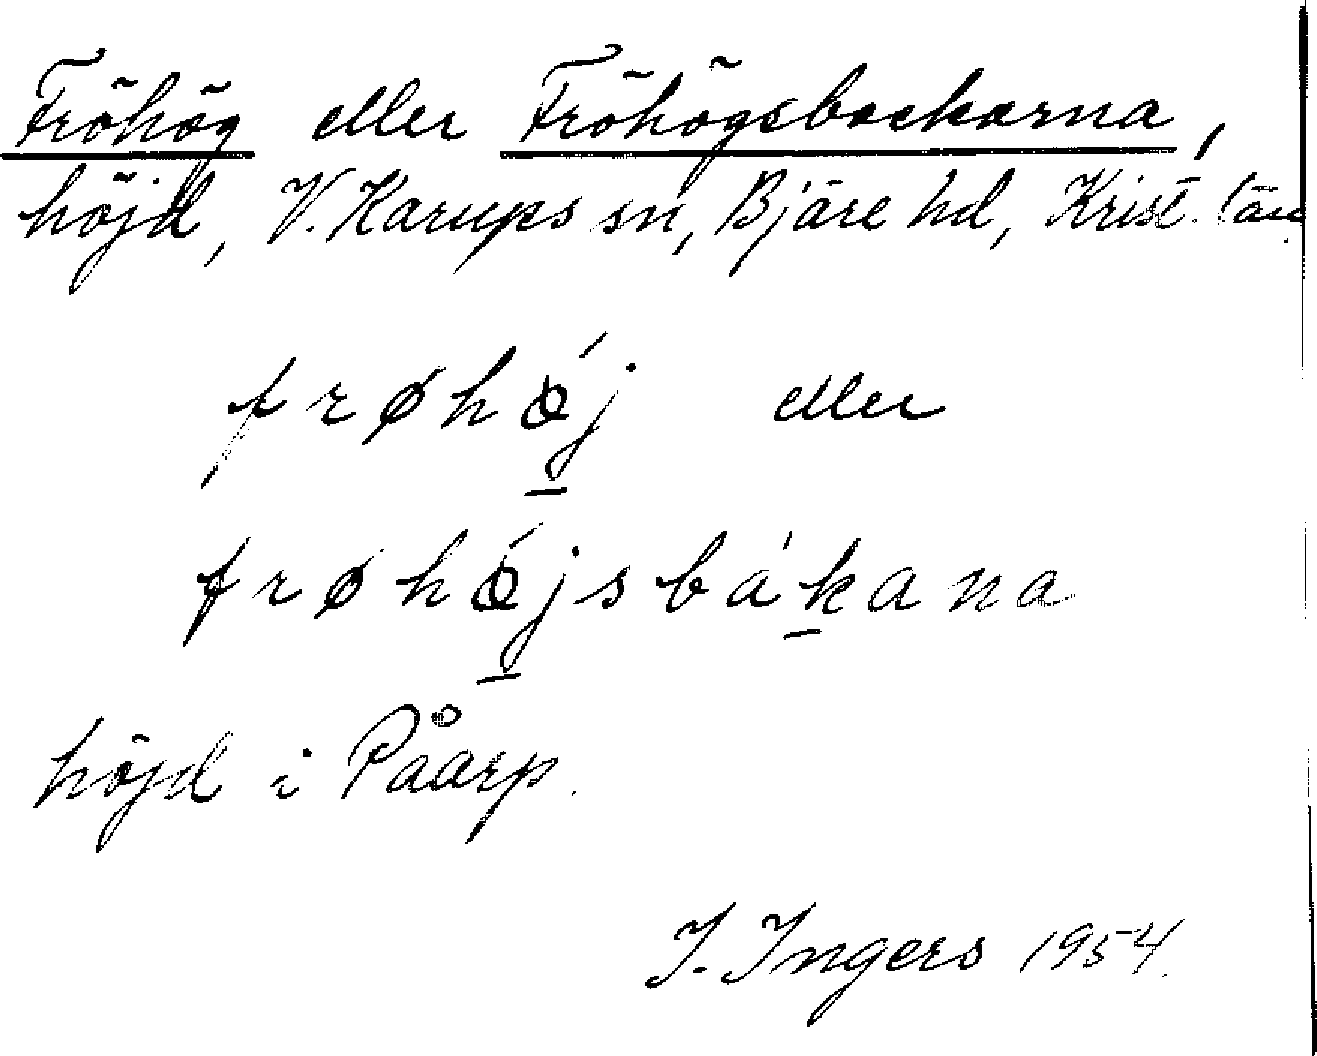 Fröhög eller Fröhögsbackarna,
höjd, V. Karups sn, Bjäre hd, Krist. län.
frøhǿj eller
frøhǿjsbákana
höjd i Påarp.
I. Ingers 1954.